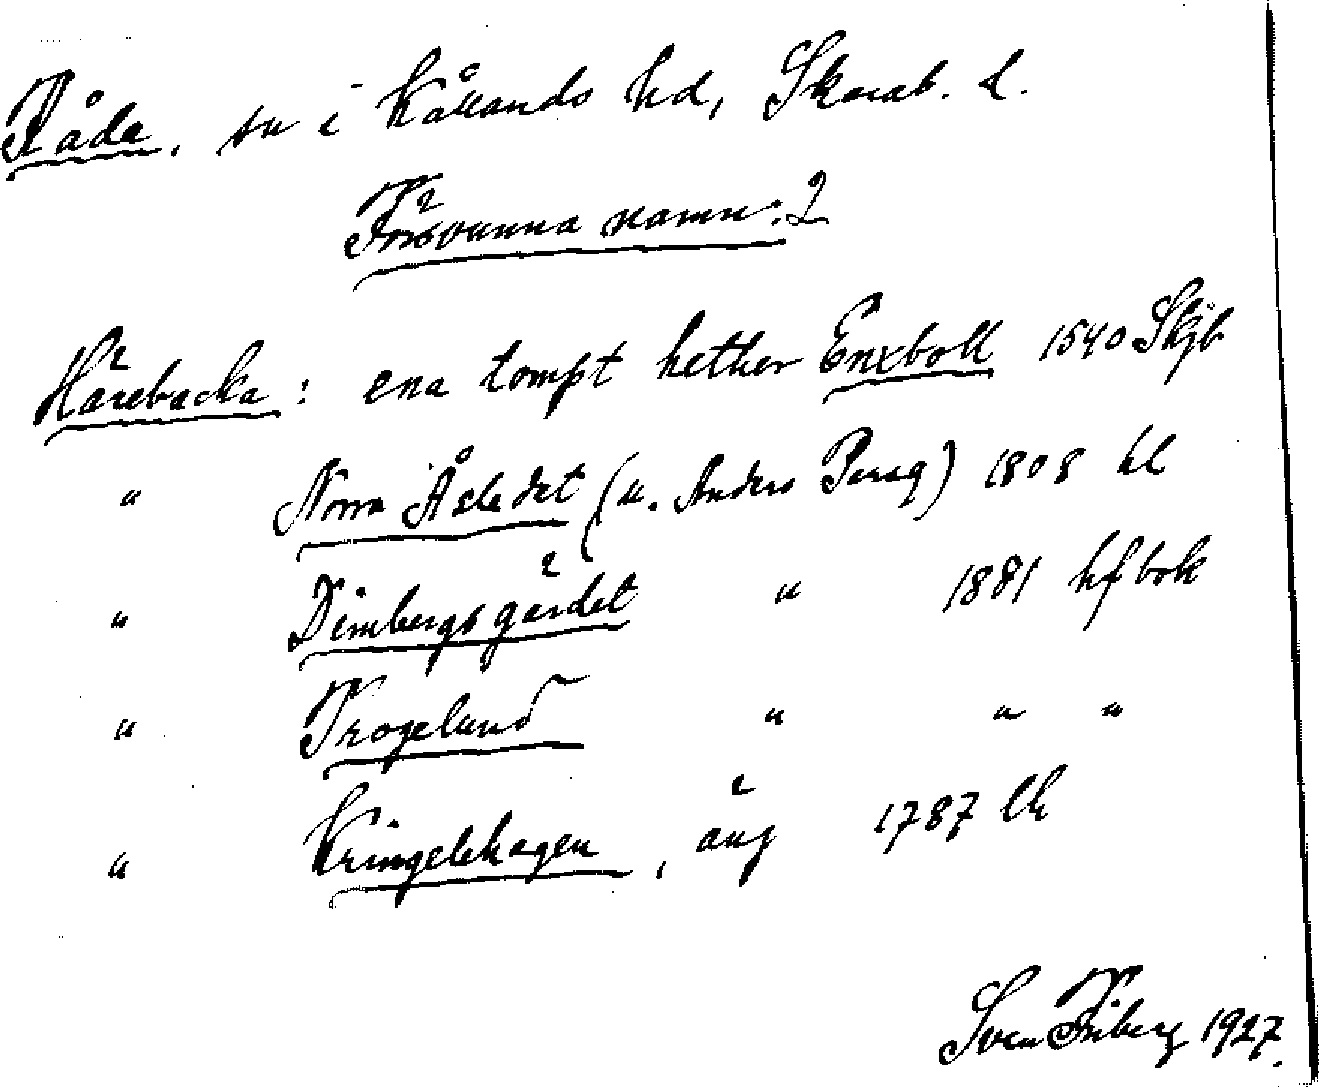 Råda. sn i Kållands hd, Skarab. l.
Försvunna namn: 2
Härebacka: ena tompt hether Enxboll 1540 Skjb
" Norra Åsledet (u. Anders Persg) 1808 hl
" Dimbergsgärdet " 1881 hfbok
" Trogelund " " "
" Kringelehagen, äng 1787 lh
Sven Friberg 1927.